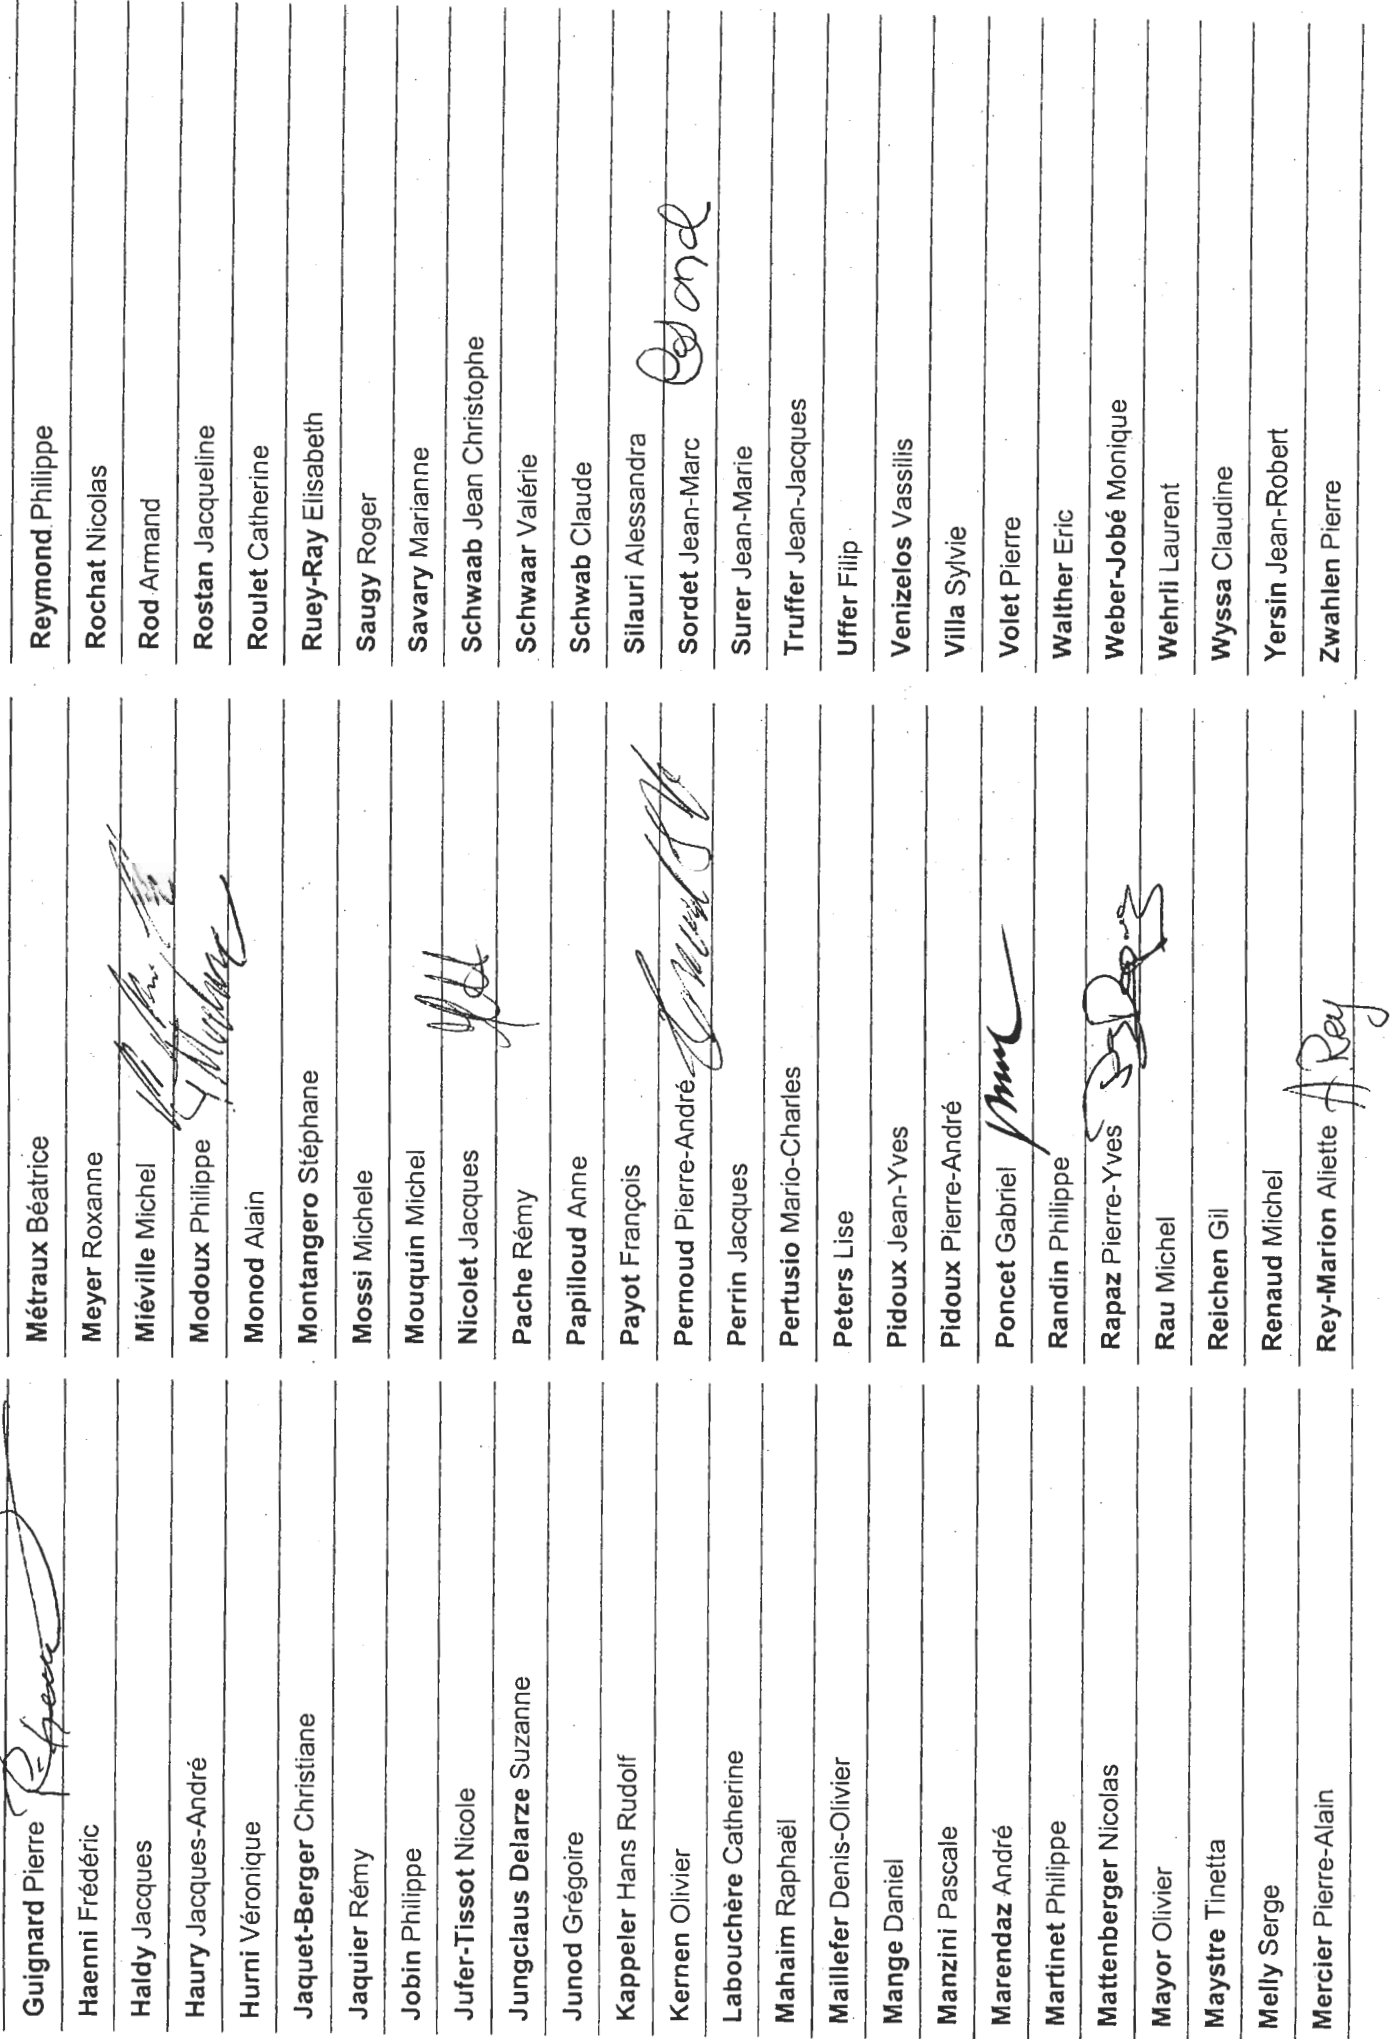 Guignard Pierre
Haenni Frédéric
Haldy Jacques
Haury Jacques-André
Hurni Véronique
Jaquet-Berger Christiane
Jaquier Rémy
Jobin Philippe
Jufer-Tissot Nicole
Jungclaus Delarze Suzanne
Junod Grégoire
Kappeler Hans Rudolf
Kernen Olivier
Labouchère Catherine
Mahaim Raphaël
Maillefer Denis-Olivier
Mange Daniel
Manzini Pascale
Marendaz André
Martinet Philippe
Mattenberger Nicolas
Mayor Olivier
Maystre Tinetta
Melly Serge
Mercier Pierre-Alain
Métraux Béatrice
Meyer Roxanne
Miéville Michel
Modoux Philippe
Monod Alain
Montangero Stéphane
Mossi Michele
Mouquin Michel
Nicolet Jacques
Pache Rémy
Papilloud Anne
Payot François
Pernoud Pierre-André
Perrin Jacques
Pertusio Mario-Charles
Peters Lise
Pidoux Jean-Yves
Pidoux Pierre-André
Poncet Gabriel
Randin Philippe
Rapaz Pierre-Yves
Rau Michel
Reichen Gil
Renaud Michel
Rey-Marion Aliette A Rey
Reymond Philippe
Rochat Nicolas
Rod Armand
Rostan Jacqueline
Roulet Catherine
Ruey-Ray Elisabeth
Saugy Roger
Savary Marianne
Schwaab Jean Christophe
Schwaar Valérie
Schwab Claude
Silauri Alessandra
Sordet Jean-Marc
Surer Jean-Marie
Truffer Jean-Jacques
Uffer Filip
Venizelos Vassilis
Villa Sylvie
Volet Pierre
Walther Eric
Weber-Jobé Monique
Wehrli Laurent
Wyssa Claudine
Yersin Jean-Robert
Zwahlen Pierre